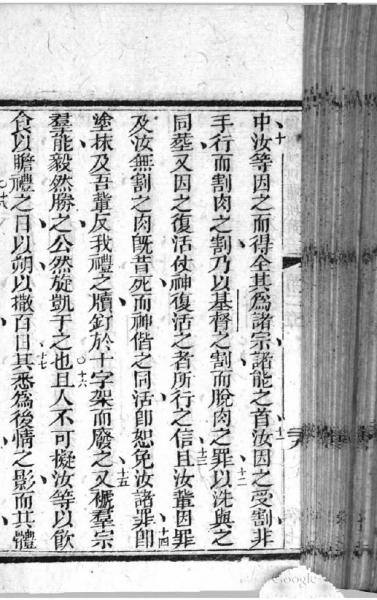 中汝等因之而得全其爲諸宗諸能之首汝因之受割非
手行而割肉之割乃以基督之割而脫肉之罪以洗與之
同塟又因之復活仗神復活之者所行之信且汝輩因罪
及汝無割之肉既昔死而神偕之同活卽恕免汝諸罪卽
塗抹及吾輩反我禮之牘釘於十字架而廢之又褫羣宗
羣能毅然勝之公然旋凱于之也且人不可擬汝等以飲
食以瞻禮之日以朔以撒百日其悉爲後情之影而其體
十
十一
十二
十三
十四
十五
十六
十七
Google